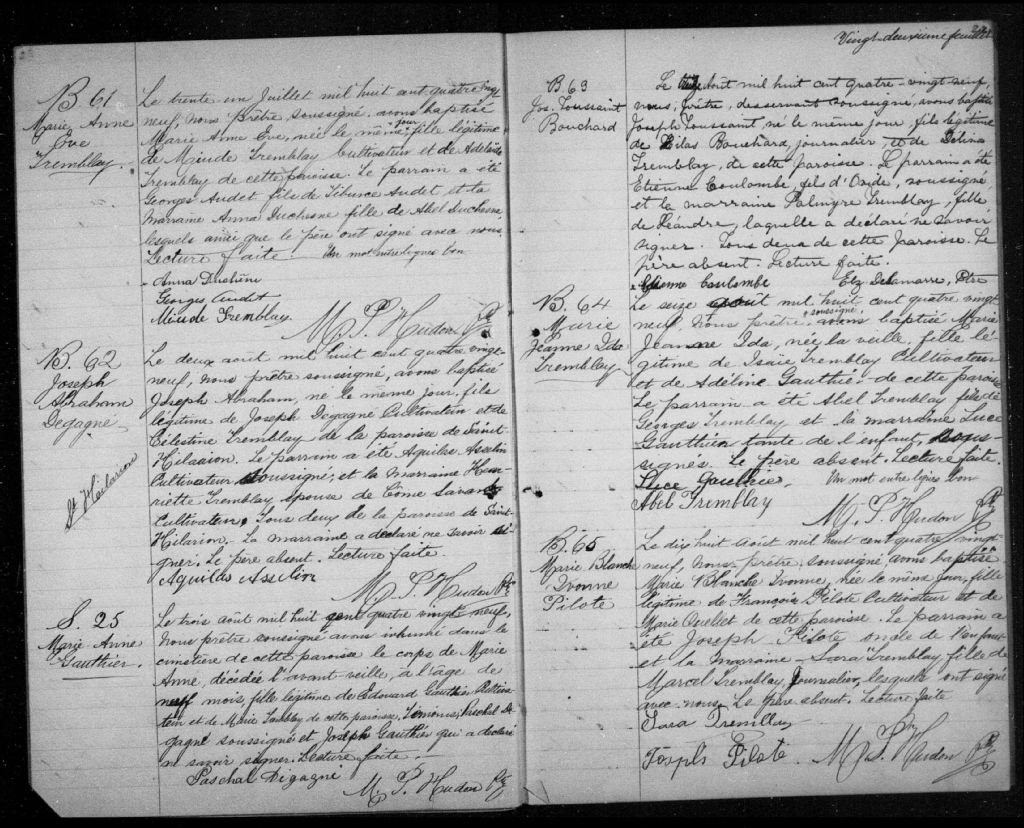 B. 61
Marie Anne
Eve
Tremblay.
Le trente un Juillet mil huit cent quatre vingt
neuf, Nous prêtre, soussigné, avons baptisé
jour
Marie Anne Eve, née le même fille légitime
de Méude Tremblay Cultivateur et de Adélaïde
Tremblay de cette paroisse. Le parrain a été
Georges Audet fils de Tiburce Audet et la
Marraine Anna Duchesne fille de Abel Duchesne
lesquels ainsi que le père ont signé avec nous.
Lecture faite. Un mot entrelignes bon
Anna Duchêne
Georges Audet
Méude Tremblay.
M. P. Hudon Ptr
B. 62
Joseph
Abraham
Degagné
St Hilarion
Le deux août mil huit cent quatre vingt-
neuf, Nous prêtre soussigné, avons baptisé
Joseph Abraham, né le même jour, fils
légitime de Joseph Degagné Cultivateur et de
Célestine Tremblay de la paroisse de Saint-
Hilarion. Le parrain a été Aquilas Asselin
Cultivateur soussigné, et la Marraine Hen-
riette Tremblay épouse de Côme Savard
Cultivateur, Tous deux de la paroisse de Saint-
Hilarion. La marraine a déclaré ne savoir si-
gner. Le père absent. Lecture faite.
Aquilas Asselin
M. P. Hudon Ptr
S. 25
Marie Anne
Gauthier.
Le trois août mil huit cent quatre vingt neuf,
Nous prêtre soussigné avons inhumé dans le
cimetière de cette paroisse le corps de Marie
Anne, décédée l'avant-veille, à l'âge de
neuf mois, fille légitime de Edouard Gauthier Cultiva-
teur et de Marie Tremblay de cette paroisse, Témoins, Paschal De-
gagné soussigné et Joseph Gauthier qui a déclaré
ne savoir signer. Lecture faite.
Paschal Degagné
M. P. Hudon Ptr
Vingt-deuxième feuillet
B. 63
Jos. Toussaint
Bouchard
Le août mil huit cent quatre-vingt-neuf,
nous, prêtre, desservant soussigné, avons baptisé
Joseph Toussaint né le même jour, fils légitime
de Hilas Bouchard, journalier, et de Délina
Tremblay, de cette paroisse. Le parrain a été
Etienne Coulombe, fils d'Ovide, soussigné
et la marraine Palmyre Tremblay, fille
de Léandre, laquelle a déclaré ne savoir
signer. Tous deux de cette paroisse. Le
père absent. Lecture faite.
Etienne Coulombe Elz. Delamarre, Ptre
B. 64
Marie
Jeanne Ida
Tremblay
Le seize août mil huit cent quatre vingt
soussigné
neuf. Nous prêtre, avons baptisé Marie
Jeanne Ida, née la veille, fille lé-
gitime de Isaïe Tremblay Cultivateur
et de Adéline Gauthier de cette paroisse
Le parrain a été Abel Tremblay fils de
Georges Tremblay et la marraine Luce
Gauthier tante de l'enfant, sous-
signés. Le père absent. Lecture faite.
Luce Gauthier. Un mot entre lignes bon
Abel Tremblay
M. P. Hudon Ptr
B. 65
Marie Blanche
Ivonne
Pilote
Le dix huit août mil huit cent quatre vingt-
neuf, Nous prêtre, soussigné avons baptisé
Marie Blanche Ivonne, née le même jour, fille
légitime de François Pilote Cultivateur et de
Marie Ouellet de cette paroisse. Le parrain a
été Joseph Pilote oncle de l'enfant
et la marraine Sara Tremblay, fille de
Marcel Tremblay, Journalier, lesquels ont signé
avec nous. Le père absent. Lecture faite
Sara Tremblay
Joseph Pilote.
M. P. Hudon Ptr